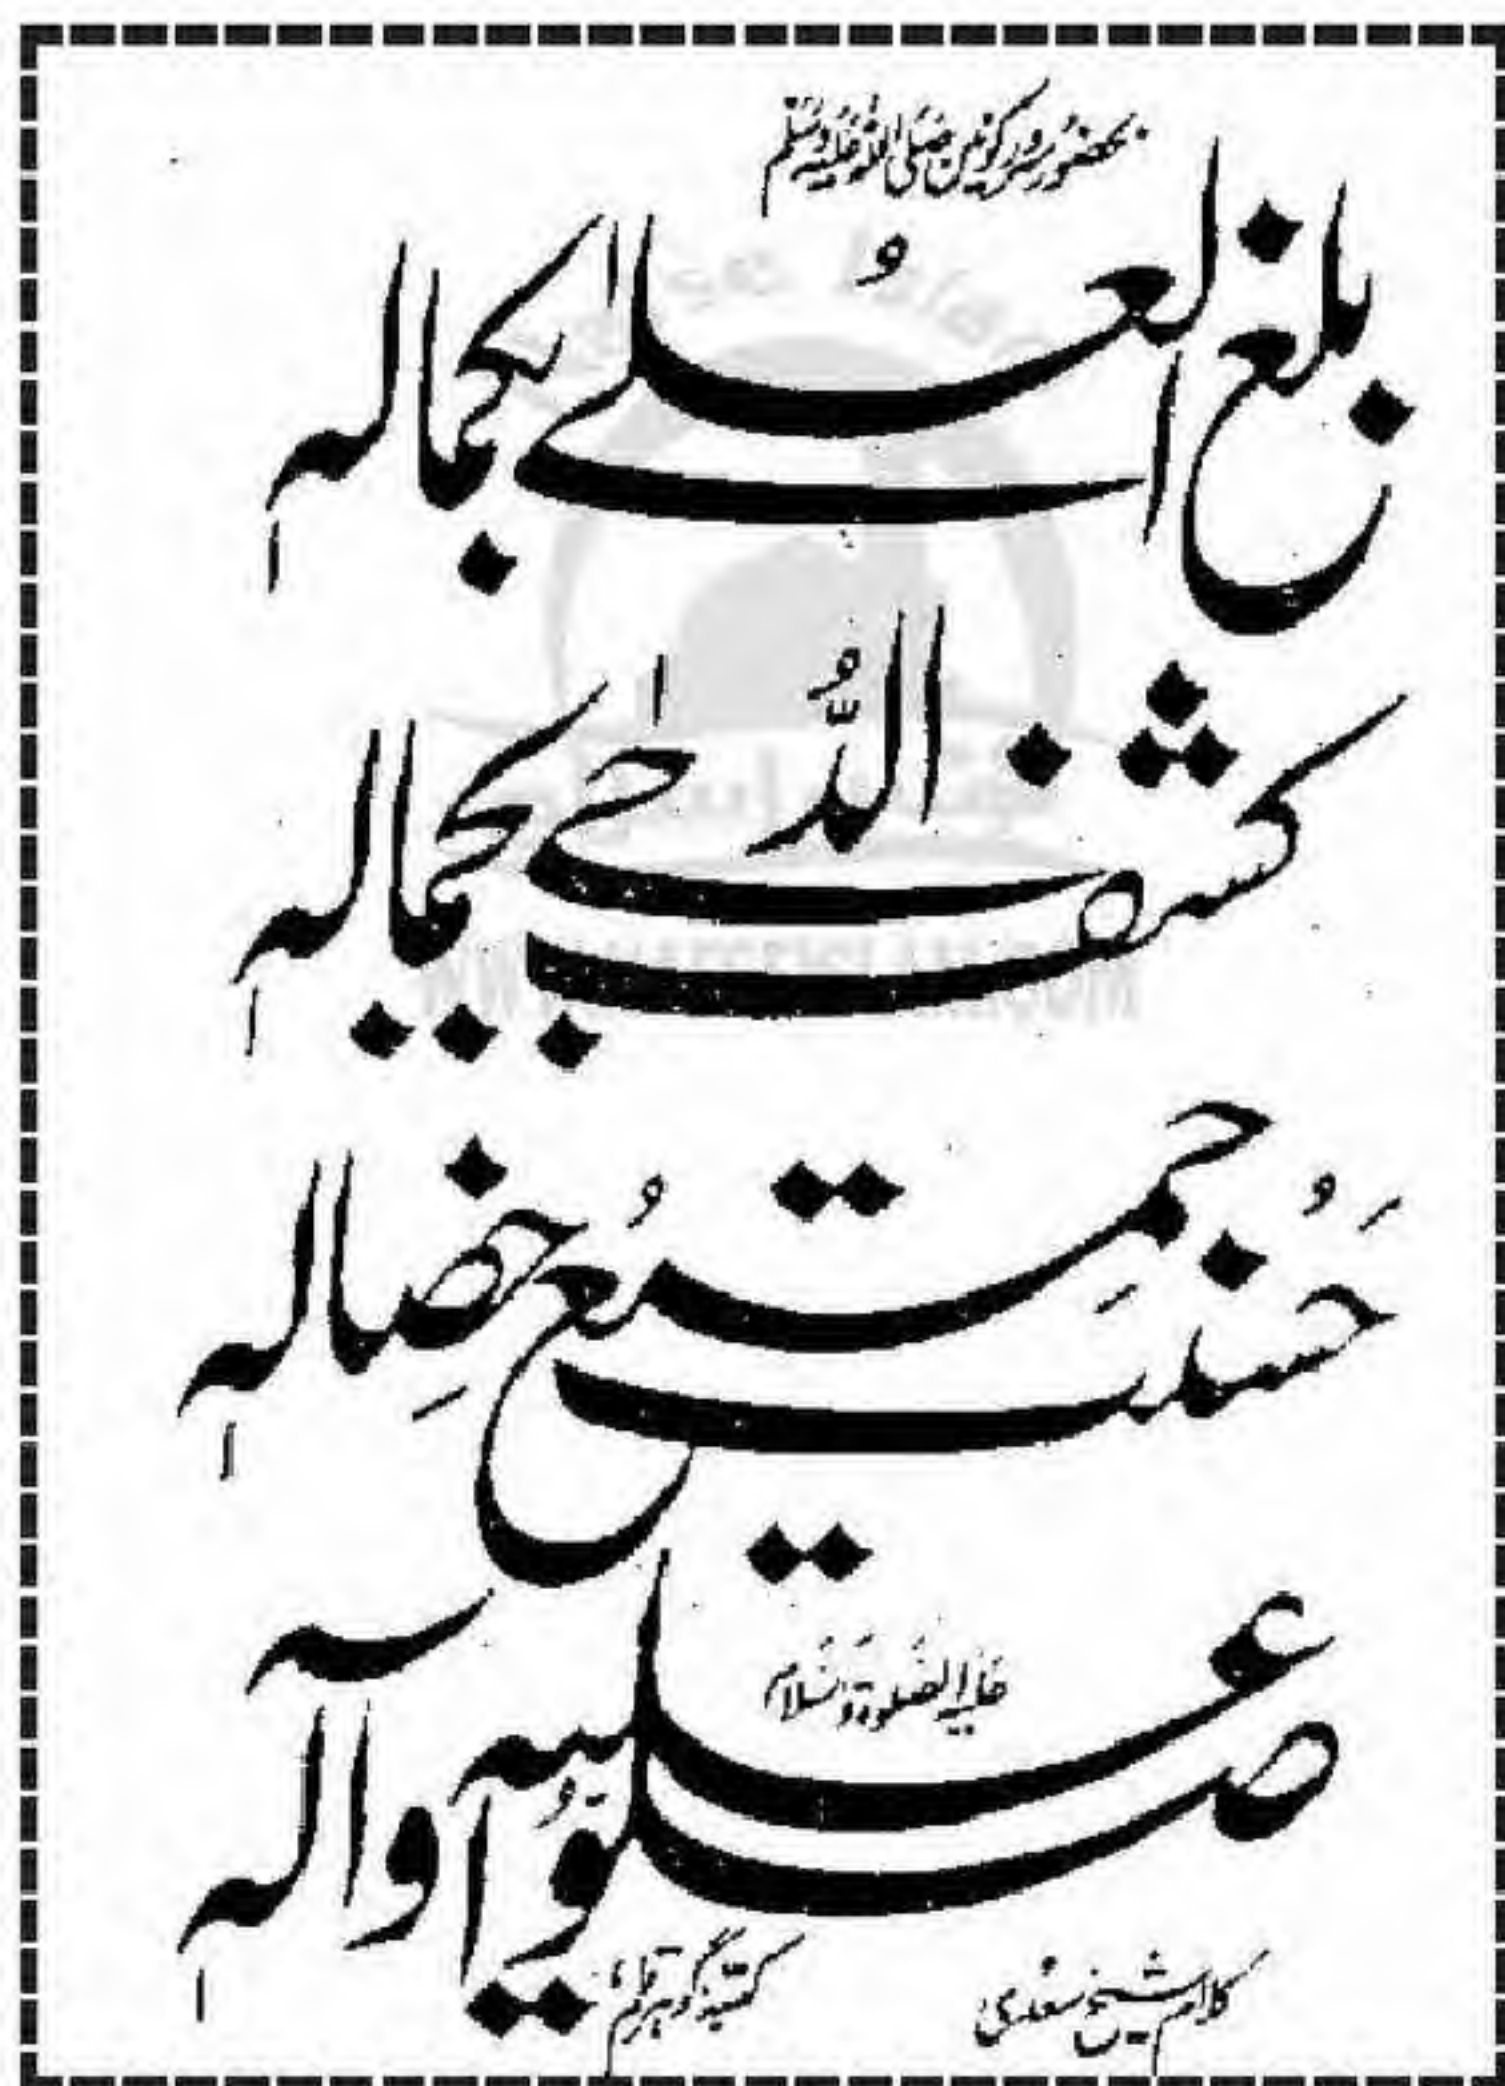 بحضور سرور کونین صلی اللہ علیہ وسلم
بلغ العُلےٰ بکمالہٖ
کشف الدُّجےٰ بجمالہٖ
حَسُنَت جمِیعُ خِصالہٖ
صلوا علیہ وآلہٖ
علیہ الصلوۃ والسلام
کلام شیخ سعدی گوہر قلم
WWW.NAFSEISLAM.COM